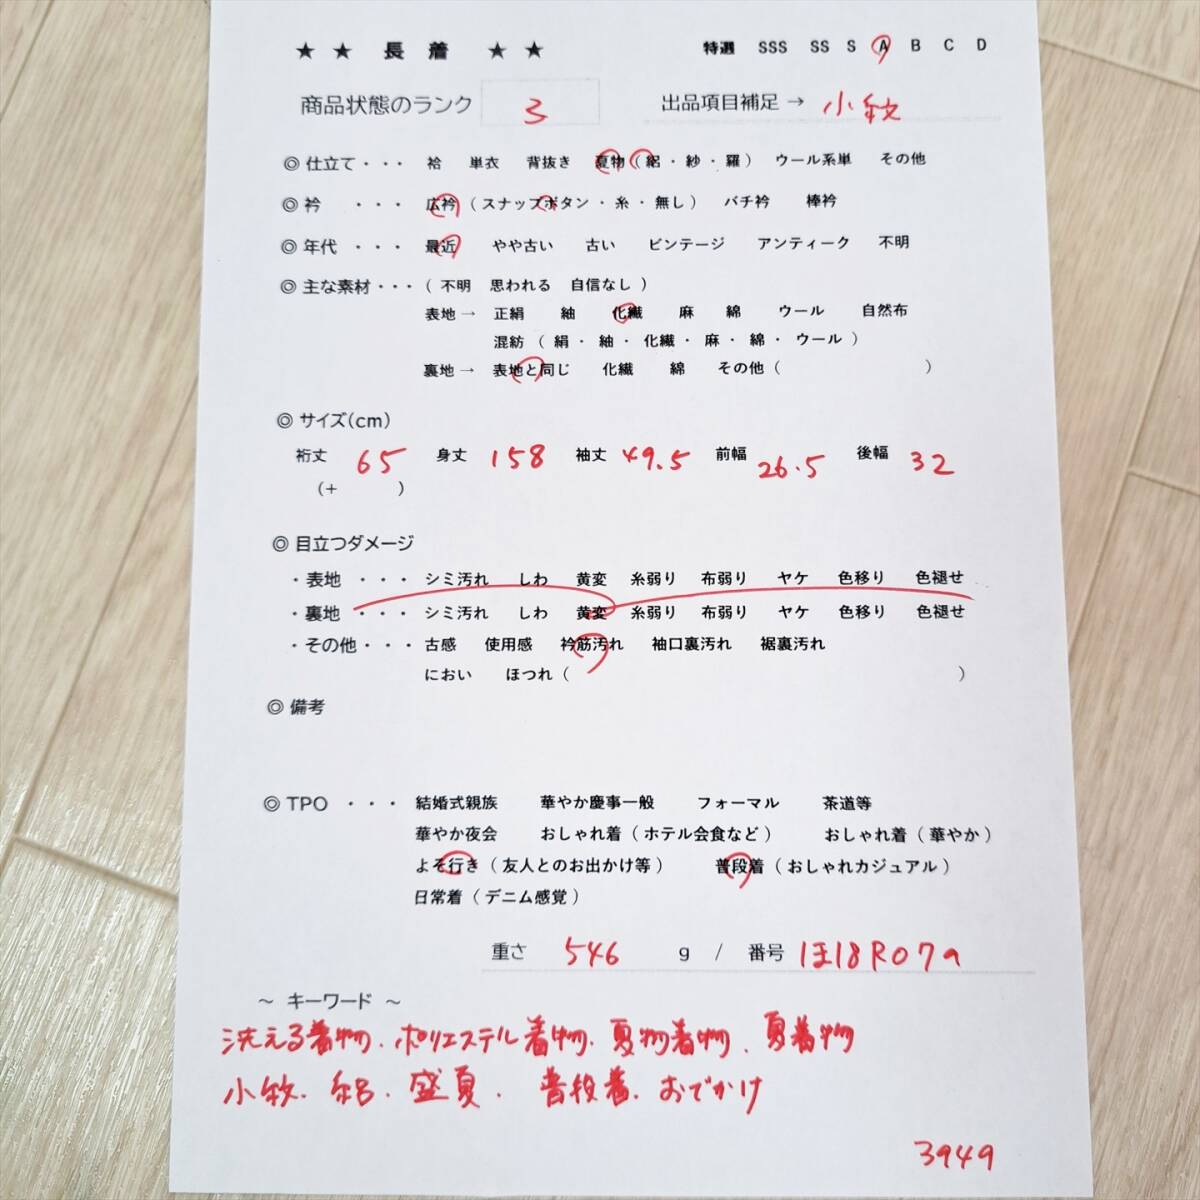 ★ ★ 長 着 ★ ★ 特選 SSS SS S A B C D
商品状態のランク 3 出品項目補足 → 小紋
◎ 仕立て ・・・ 袷 単衣 背抜き 夏物 ( 絽 ・ 紗 ・ 羅 ) ウール系単 その他
◎ 衿 ・・・ 広衿 ( スナップボタン ・ 糸 ・ 無し ) バチ衿 棒衿
◎ 年代 ・・・ 最近 やや古い 古い ビンテージ アンティーク 不明
◎ 主な素材 ・・・ ( 不明 思われる 自信なし )
表地 → 正絹 紬 化繊 麻 綿 ウール 自然布
混紡 ( 絹 ・ 紬 ・ 化繊 ・ 麻 ・ 綿 ・ ウール )
裏地 → 表地と同じ 化繊 綿 その他 ( )
◎ サイズ(cm)
裄丈 65 身丈 158 袖丈 49.5 前幅 26.5 後幅 32
(+ )
◎ 目立つダメージ
・ 表地 ・・・ シミ汚れ しわ 黄変 糸弱り 布弱り ヤケ 色移り 色褪せ
・ 裏地 ・・・ シミ汚れ しわ 黄変 糸弱り 布弱り ヤケ 色移り 色褪せ
・ その他 ・・・ 古感 使用感 衿筋汚れ 袖口裏汚れ 裾裏汚れ
におい ほつれ ( )
◎ 備考
◎ TPO ・・・ 結婚式親族 華やか慶事一般 フォーマル 茶道等
華やか夜会 おしゃれ着 ( ホテル会食など ) おしゃれ着 ( 華やか )
よそ行き ( 友人とのお出かけ等 ) 普段着 ( おしゃれカジュアル )
日常着 ( デニム感覚 )
重さ 546 g / 番号 ほ18R07a
～ キーワード ～
洗える着物. ポリエステル着物. 夏物着物. 夏着物
小紋. 絽. 盛夏. 普段着. おでかけ
3949